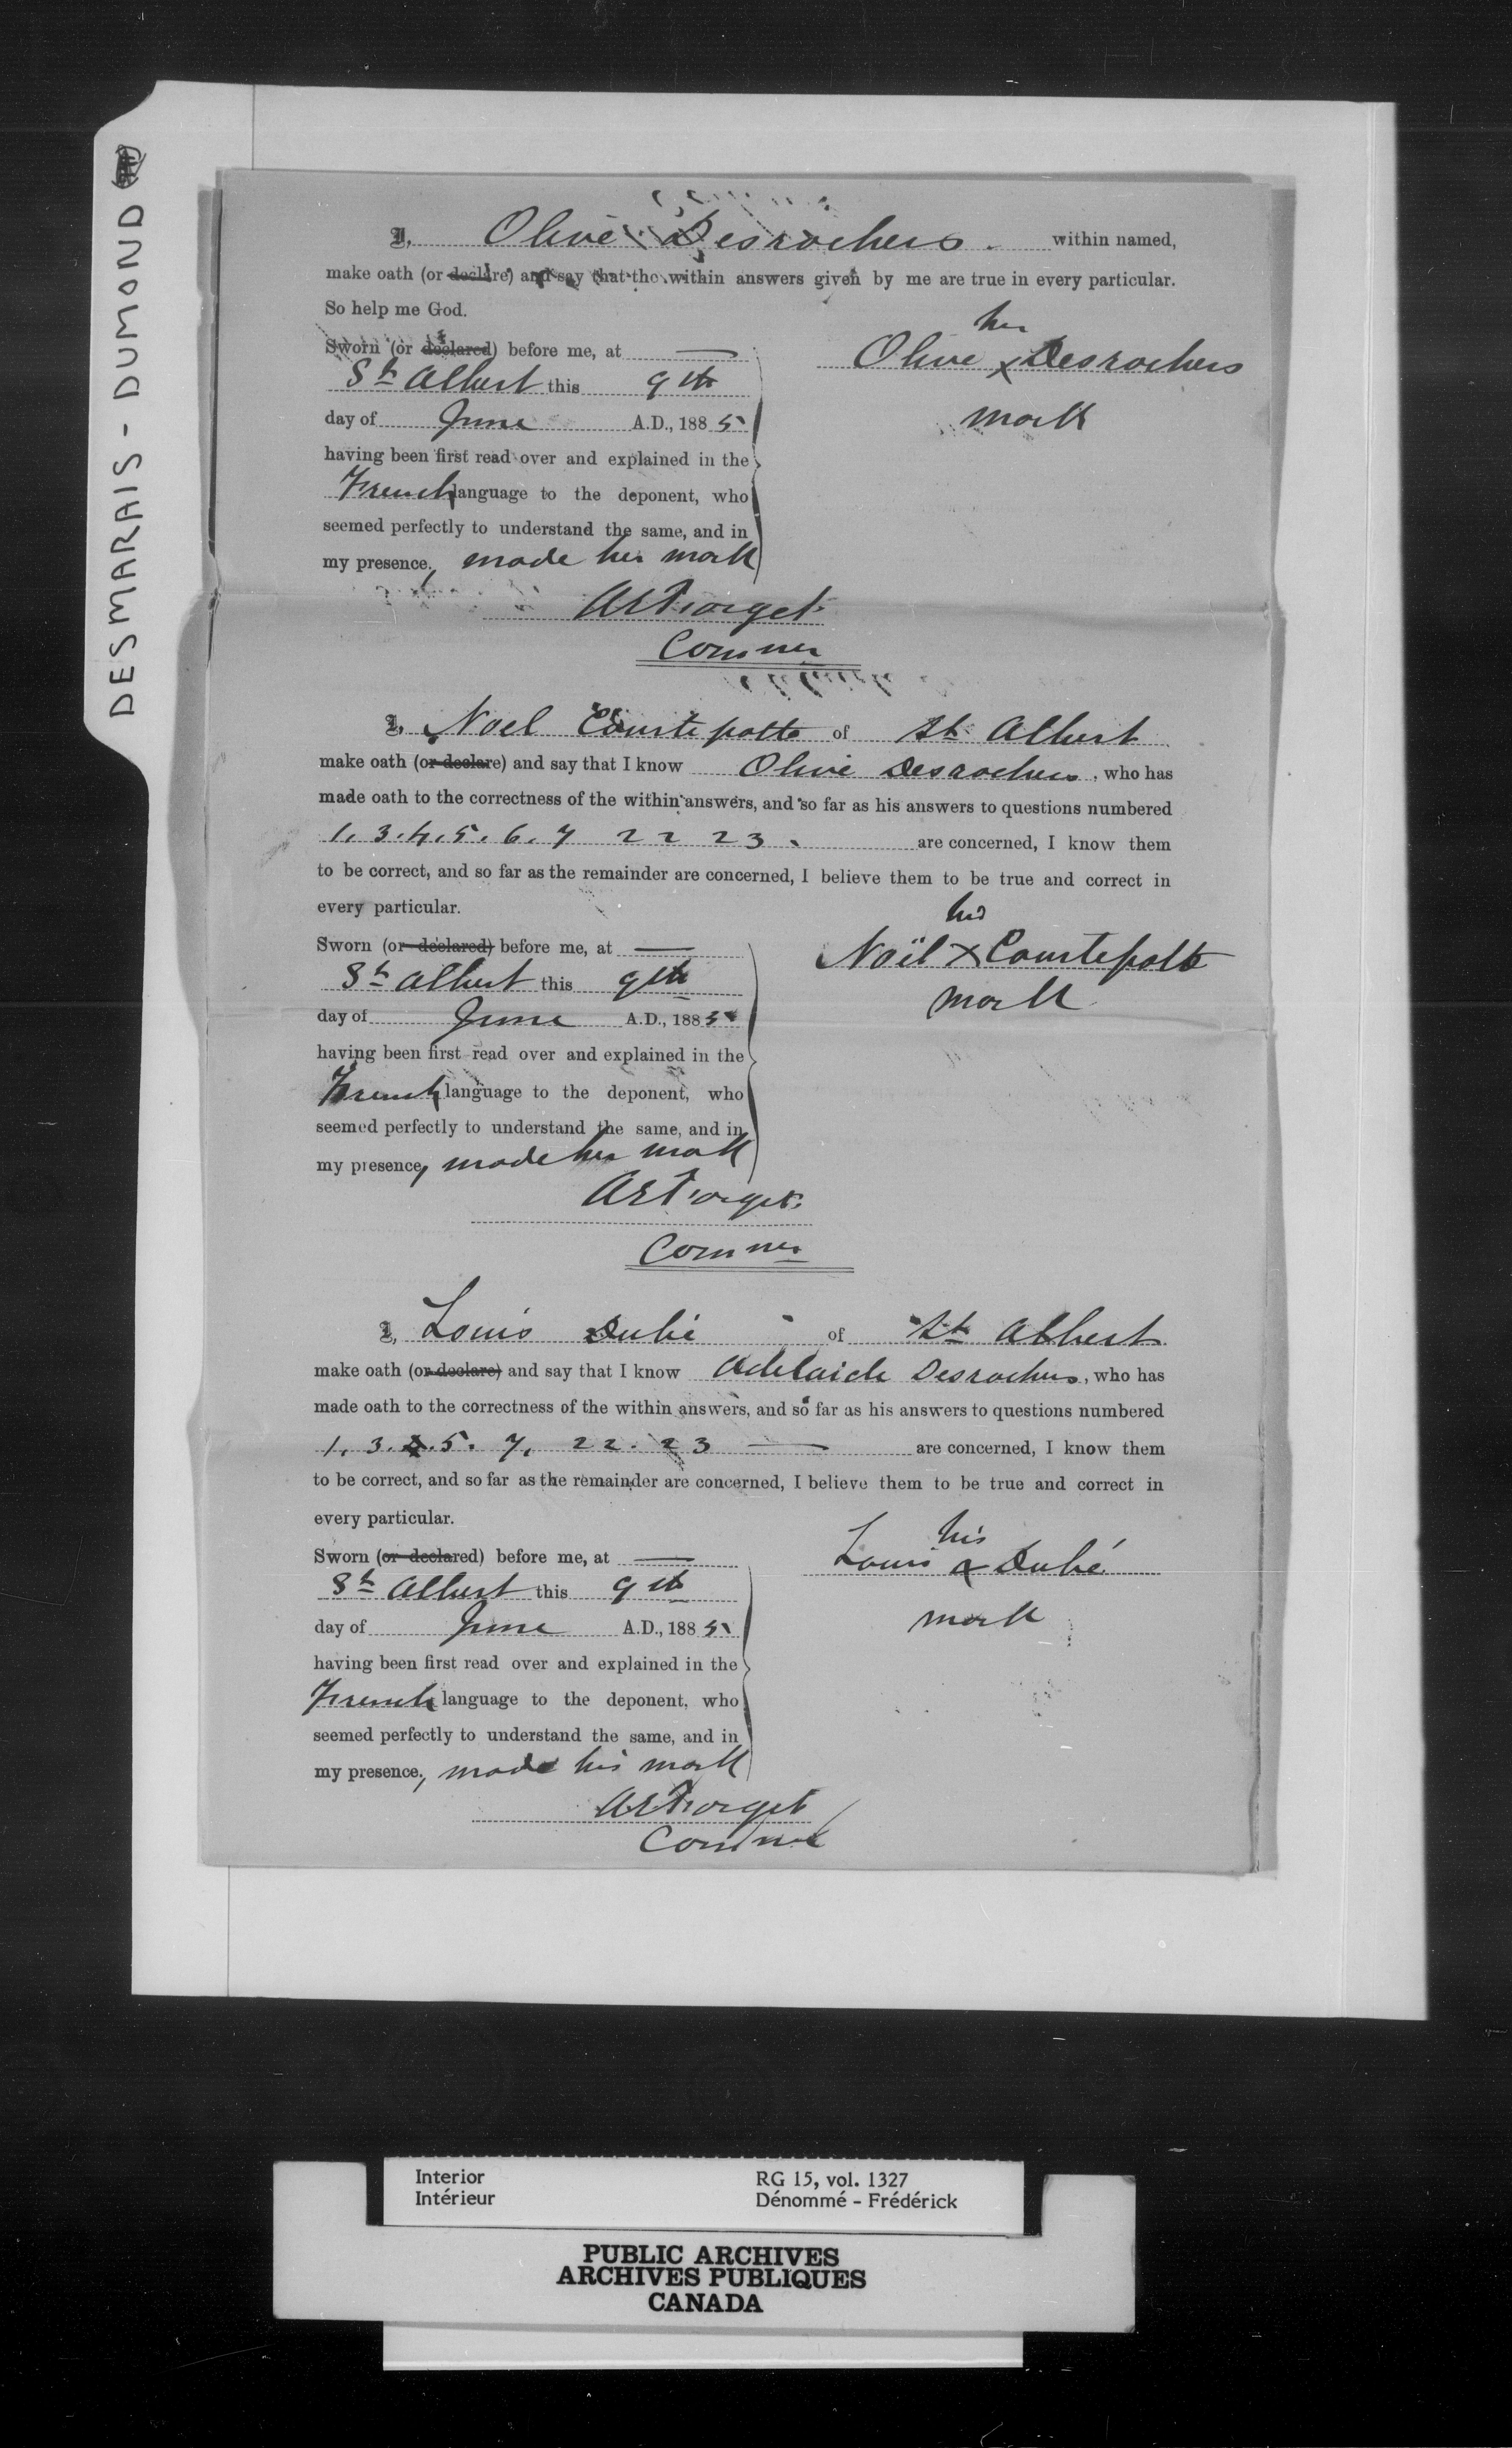 DESMARAIS - DUMOND
I, Olive Desrochers. within named,
make oath (or declare) and say that the within answers given by me are true in every particular.
So help me God.
her
Sworn (or declared) before me, at —
Olive x Desrochers
St Albert this 9th
mark
day of June A.D., 1885
having been first read over and explained in the
French language to the deponent, who
seemed perfectly to understand the same, and in
my presence, made her mark
AEForget
Commer
I, Noel Courtepatte of St Albert
make oath (or declare) and say that I know Olive Desrochers, who has
made oath to the correctness of the within answers, and so far as his answers to questions numbered
1. 3. 4. 5. 6. 7 22 23. are concerned, I know them
to be correct, and so far as the remainder are concerned, I believe them to be true and correct in
every particular.
his
Sworn (or declared) before me, at —
Noël x Courtepatte
St Albert this 9th
mark
day of June A.D., 1885
having been first read over and explained in the
French language to the deponent, who
seemed perfectly to understand the same, and in
my presence, made his mark
AEForget
Commer
I, Louis Dubé of St Albert
make oath (or declare) and say that I know Adelaide Desrochers, who has
made oath to the correctness of the within answers, and so far as his answers to questions numbered
1. 3. 4. 5. 7. 22. 23 — are concerned, I know them
to be correct, and so far as the remainder are concerned, I believe them to be true and correct in
every particular.
his
Sworn (or declared) before me, at —
Louis x Dubé
St Albert this 9th
mark
day of June A.D., 1885
having been first read over and explained in the
French language to the deponent, who
seemed perfectly to understand the same, and in
my presence, made his mark
AEForget
Commer
Interior RG 15, vol. 1327
Intérieur Dénommé - Frédérick
PUBLIC ARCHIVES
ARCHIVES PUBLIQUES
CANADA